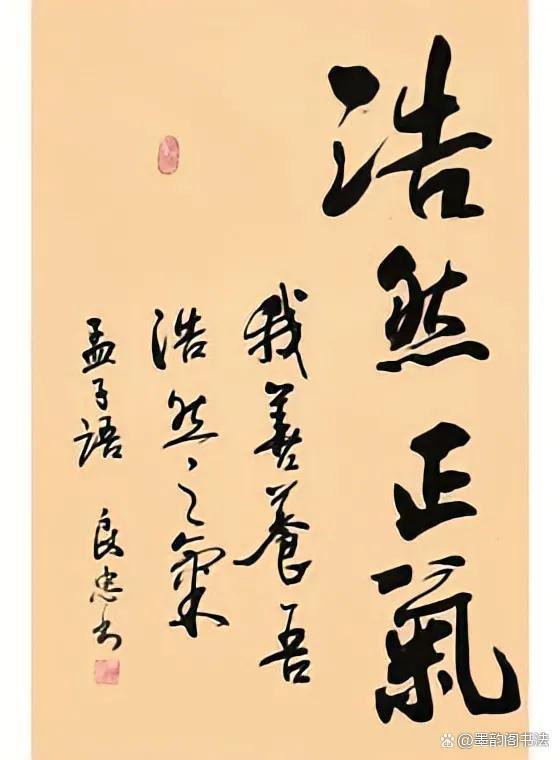 浩然正氣
我善養吾
浩然之氣
孟子語 良忠书
@墨韵阁书法